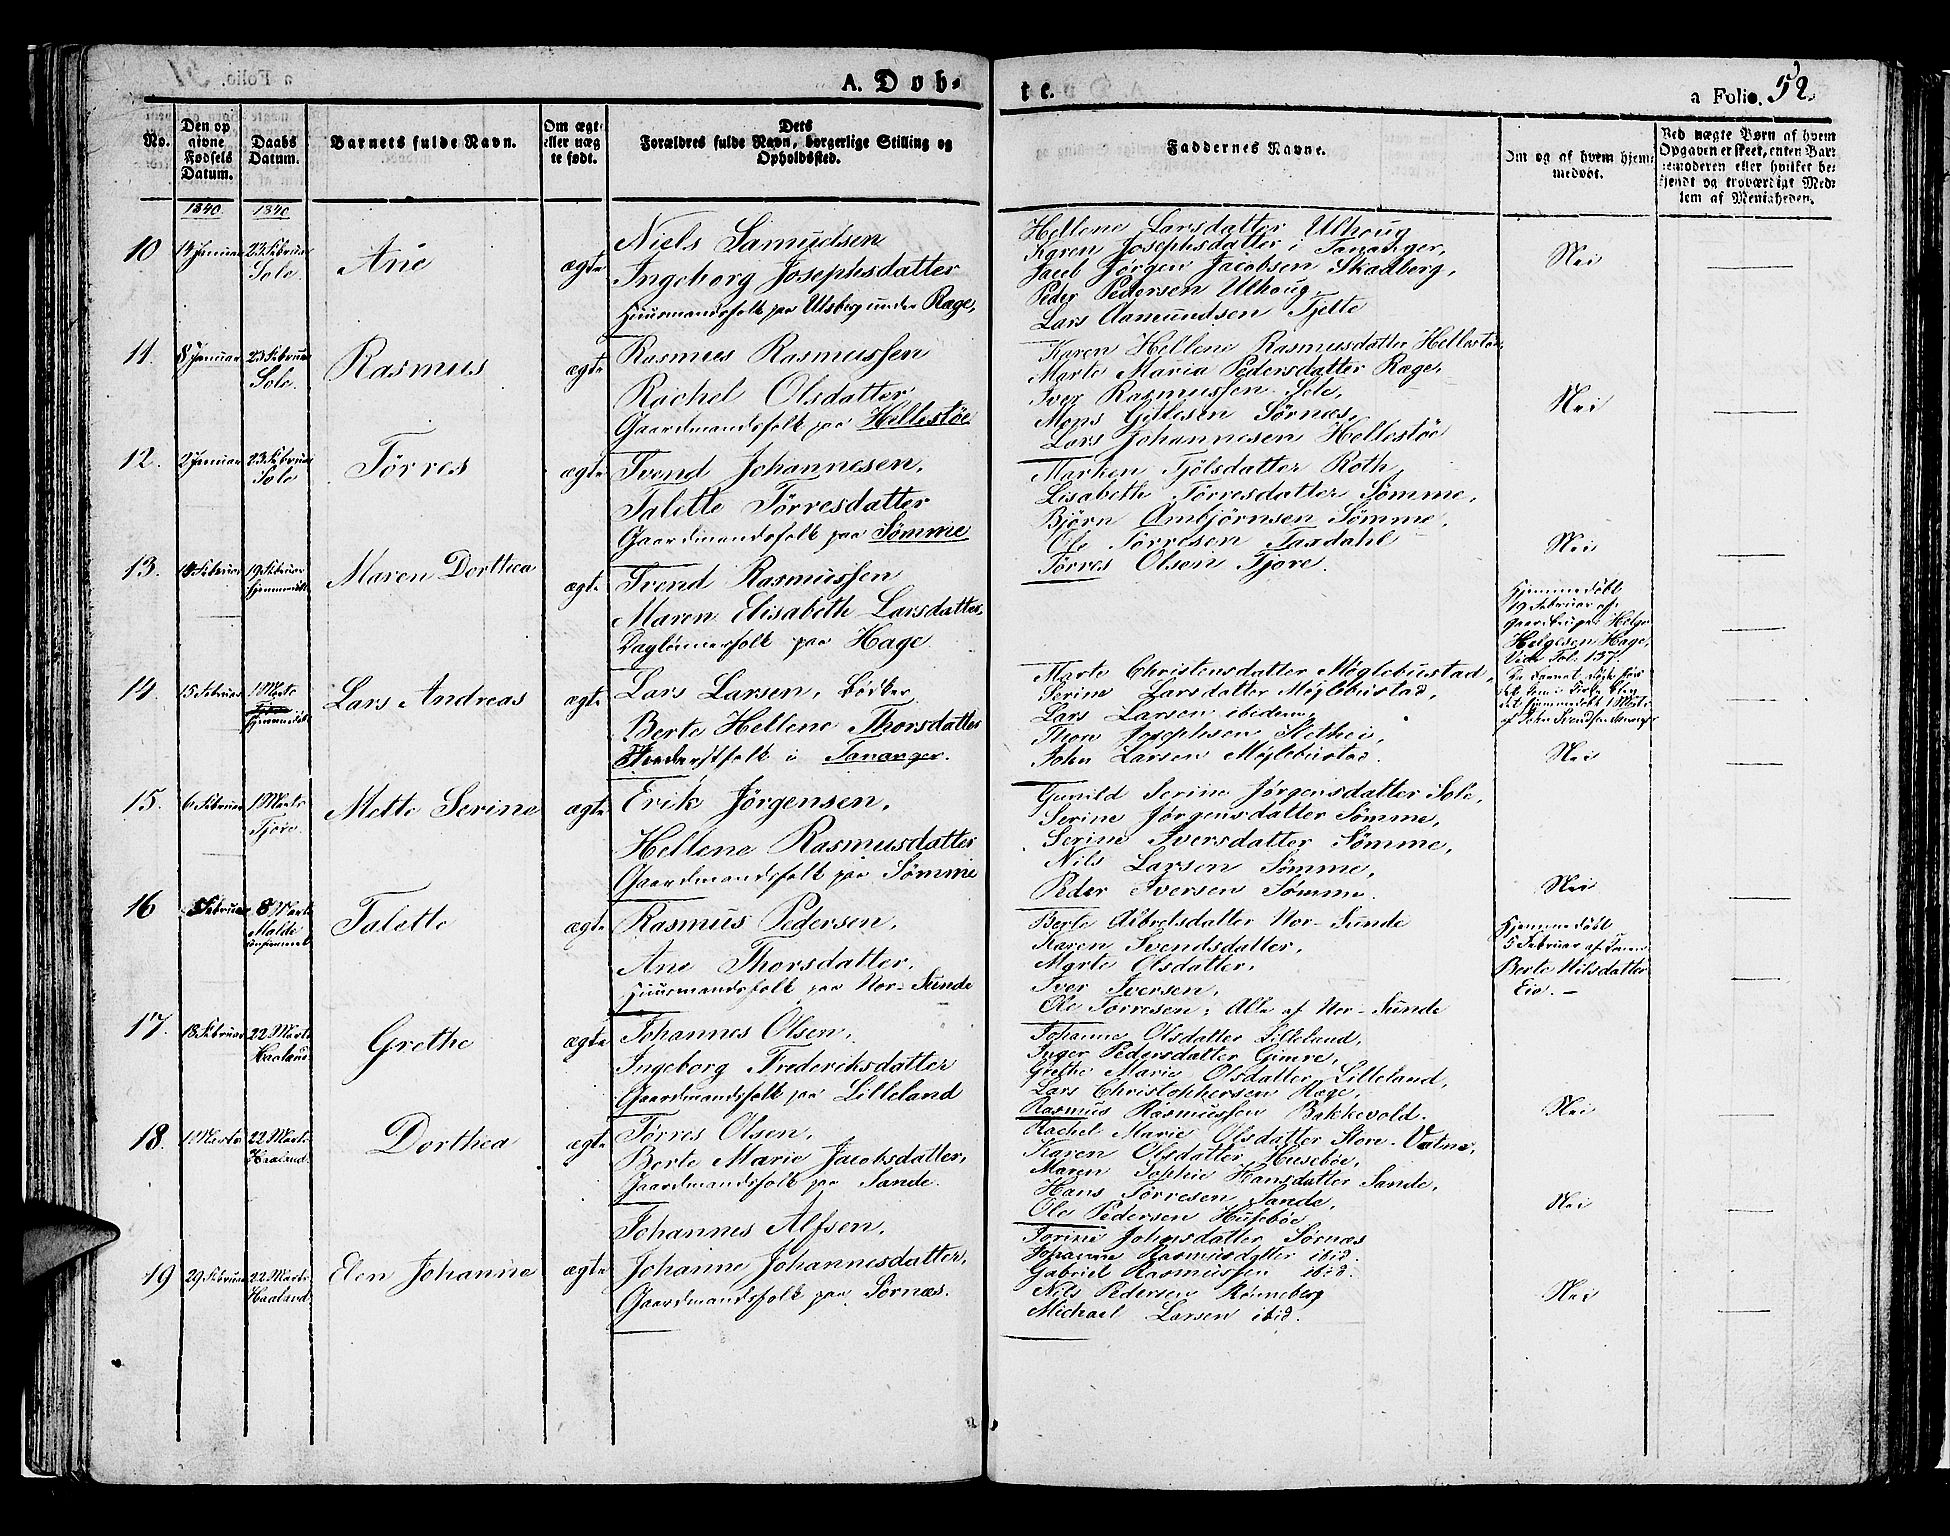 A. Døb-
te.
a Folio. 52.
No.
Den op
givne
Fødsels
Datum.
Daabs
Datum.
Barnets fulde Navn.
Om ægte
eller uæg
te født.
Dets
Forældres fulde Navn, borgerlige Stilling og
Opholdssted.
Faddernes Navne.
Om og af hvem hjem-
medøbt.
Ved uægte Børn af hvem
Opgaven er skeet, enten Bar-
nemoderen eller hvilket be-
kjendt og troværdigt Med-
lem af Menigheden.
1840. 1840
10 14 Januar 23 Februar
Sole.
Ane
ægte
Niels Samuelsen
Ingeborg Josephsdatter
Huusmandsfolk paa Ulsberg under Ræge,
Hellene Larsdatter Ulhoug
Karen Josephsdatter i Tananger,
Jacob Jørgen Jacobsen Skadberg,
Peder Pedersen Ulhoug,
Lars Aamundsen Tjelte
Nei
11. 8 Januar 23 Februar
Sole.
Rasmus
ægte
Rasmus Rasmussen
Rachel Olsdatter
Gaardmandsfolk paa Hellestøe
Karen Hellene Rasmusdatter Hellestøe,
Marte Maria Pedersdatter Ræge,
Iver Rasmussen Sole,
Mons Gitlesen Sørnæs,
Lars Johannesen Hellestøe
Nei
12. 2 Januar 23 Februar
Sole
Tørres
ægte
Svend Johannesen,
Talette Tørresdatter
Gaardmandsfolk paa Sømme
Marken Tjølsdatter Roth,
Lisabeth Tørresdatter Sømme,
Bjørn Ambjørnsen Sømme,
Ole Tørresen Taxdahl
Tørres Olsen Tjore.
Nei
13. 18 Februar 19 Februar
hjemmedøbt
Maren Dorthea
ægte
Svend Rasmussen
Maren Elisabeth Larsdatter,
Daglønnerfolk paa Hage.
Hjemmedøbt
19 Februar af
Helge
Helgesen Hage,
Vide Fol. 137.
14. 15 Februar 1 Marts
hjemmedøbt
Lars Andreas
ægte
Lars Larsen, Bødker
Berte Hellene Thorsdatter
Strandsidfolk i Tananger.
Marte Christensdatter Møglebustad,
Serine Larsdatter Møglebustad,
Lars Larsen ibedem,
Thore Josephsen
John Larsen Møglebustad.
Nei
15. 6 Februar 1 Marts
Tjore.
Mette Serine
ægte
Erik Jørgensen,
Hellene Rasmusdatter
Gaardmandsfolk paa Sømme
Gunild Serine Jørgensdatter Sole,
Serine Jørgensdatter Sømme,
Serine Iversdatter Sømme,
Nils Larsen Sømme,
Peder Iversen Sømme.
Nei
16 5 Februar 8 Marts
Malde
confirmeret
Talette
ægte
Rasmus Pedersen,
Ane Thorsdatter,
Huusmandsfolk paa Nor-Sunde
Berte Albretsdatter Nor-Sunde
Karen Svendsdatter,
Marte Olsdatter,
Iver Iversen,
Ole Tørresen, Alle af Nor-Sunde
Hjemmedøbt
5 Februar af Konen
Berte Nilsdatter
Eie. –
17. 18 Februar 22 Marts
Haaland.
Grethe
ægte
Johannes Olsen,
Ingeborg Frederiksdatter
Gaardmandsfolk paa Lilleland
Johanne Olsdatter Lilleland,
Inger Pedersdatter Gimre,
Grethe Marie Olsdatter Lilleland,
Lars Christophersen Ræge,
Rasmus Rasmussen Bakkevold.
Nei
18. 1 Marts 22 Marts
Haaland.
Dorthea
ægte
Tørres Olsen,
Berte Marie Jacobsdatter,
Gaardmandsfolk paa Sande.
Rachel Marie Olsdatter Store-Vatne,
Karen Olsdatter Husebøe,
Maren Sophie Hansdatter Sande,
Hans Tørresen Sande,
Ole Pedersen Husebøe
Nei
19 29 Februar 22 Marts
Haaland.
Elen Johanne
ægte
Johannes Alfsen,
Johanne Johannesdatter,
Gaardmandsfolk paa Sørnæs.
Torine Johnsdatter Sørnæs
Johanne Rasmusdatter ibid.
Gabriel Rasmussen ibid.
Nils Pedersen Rønneberg
Michael Larsen ibid.
Nei